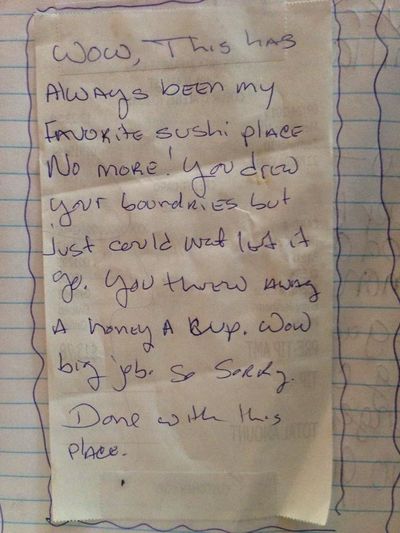 Wow, This has
Always been my
Favorite sushi place
No more! You drew
your boundries but
Just could not let it
go. You threw away
A honey A Wow
big job. So Sorry.
Done with this
place.